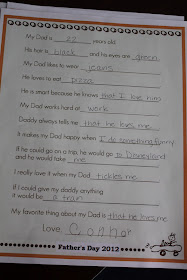 My Dad is 32 years old.
He hair is black and his eyes are green.
My Dad likes to wear jeans.
He loves to eat pizza.
He is smart because he knows that I love him.
My Dad works hard at work.
Daddy always tells me that he loves me.
It makes my Dad happy when I do something funny.
If he could go on a trip, he would go to Disneyland
and he would take me.
I really love it when my Dad tickles me.
If I could give my daddy anything
it would be a train.
My favorite thing about my Dad is that he loves me.
Love, Connor
Father's Day 2012